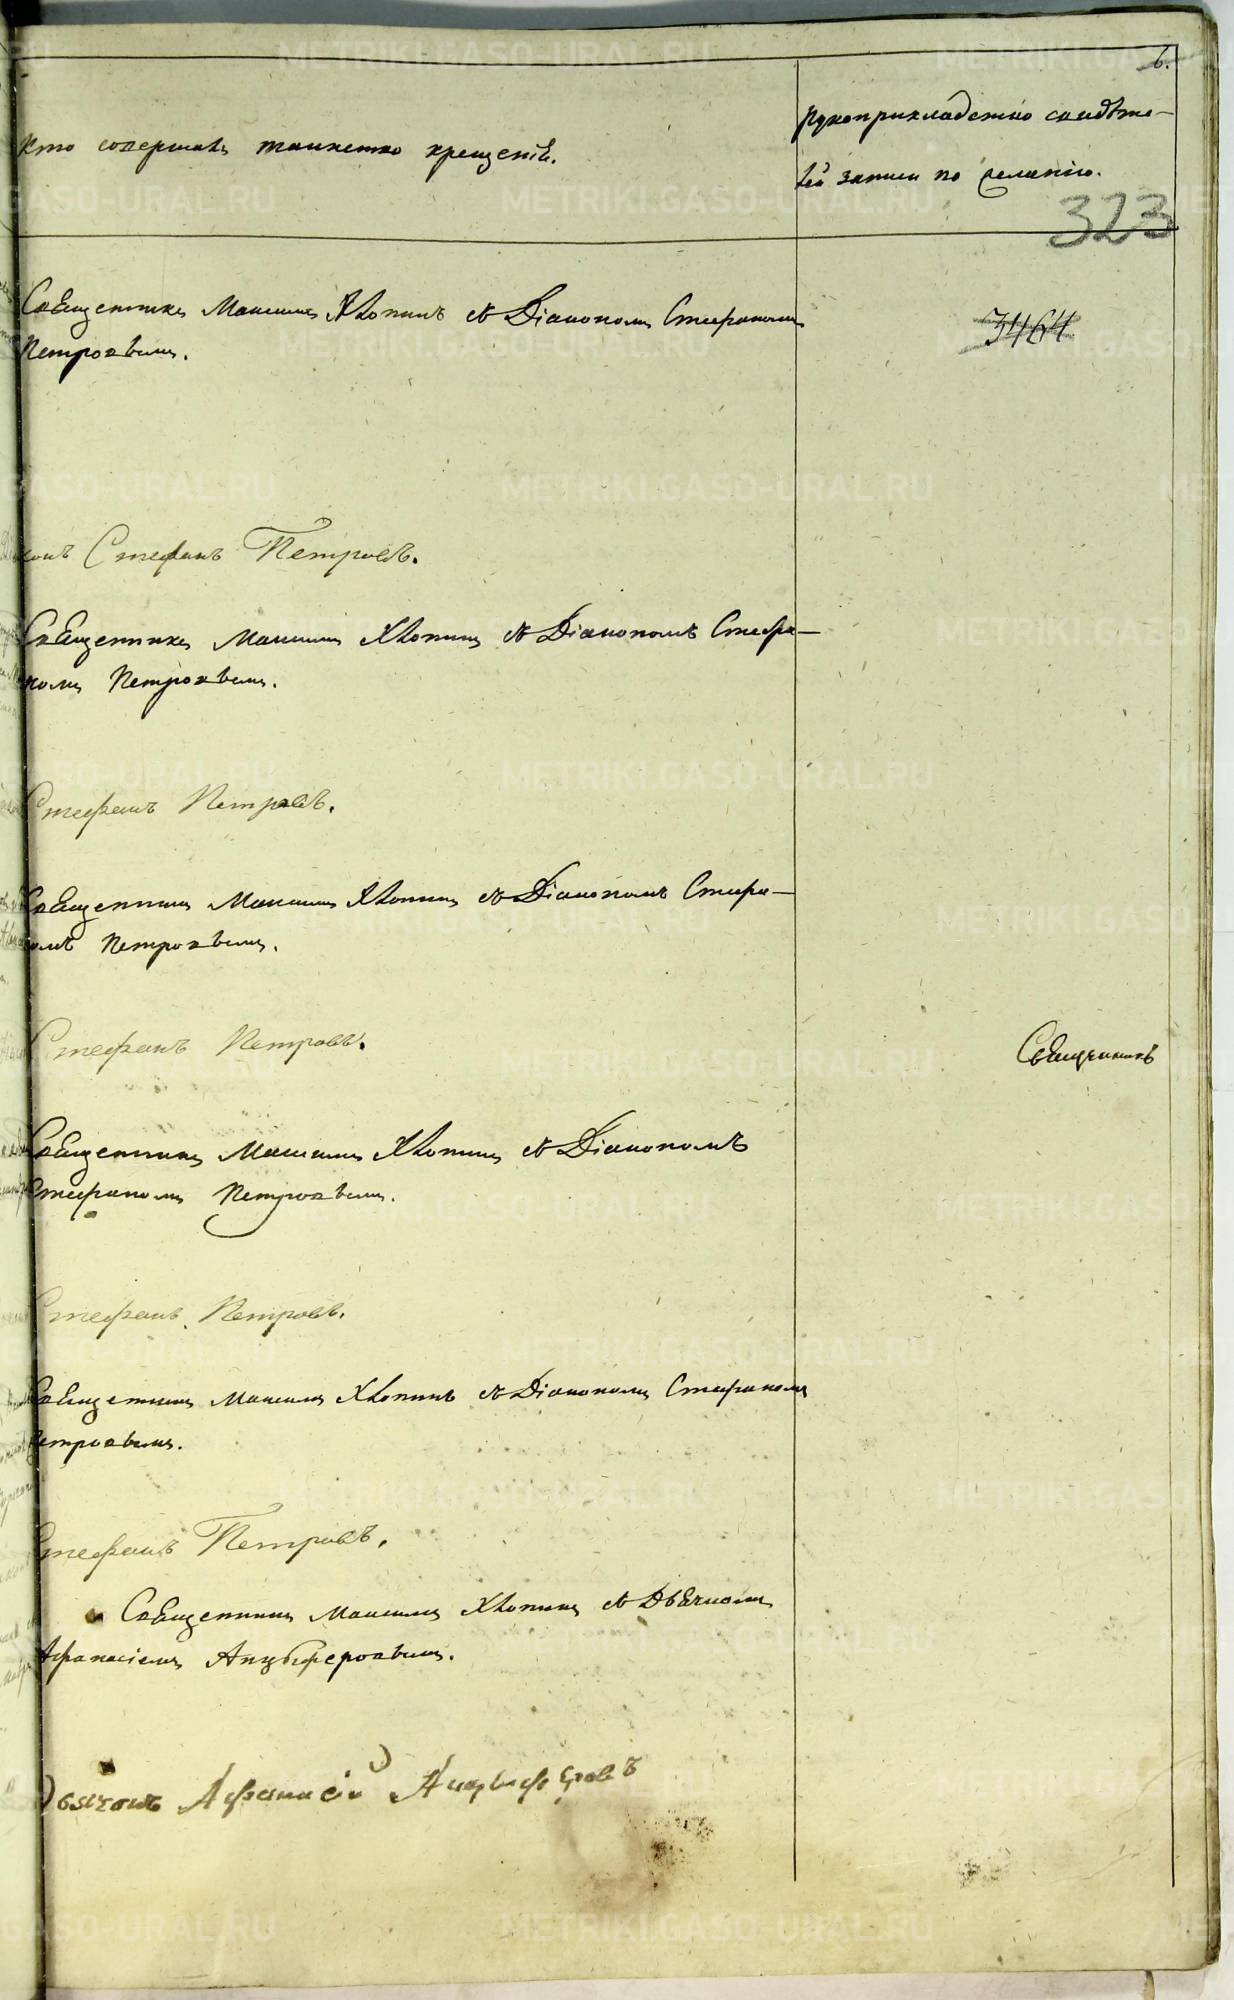 6.
Кто совершалъ таинство крещенія.
Рукоприкладство свидѣте-
лей записи по желанію.
323
3464
Священникъ Максимъ Хлопинъ съ Діакономъ Стефаномъ
Петровымъ.
Стефанъ Петровъ.
Священникъ Максимъ Хлопинъ съ Діакономъ Стефа-
номъ Петровымъ.
Стефанъ Петровъ.
Священникъ Максимъ Хлопинъ съ Діакономъ Стефа-
номъ Петровымъ.
Стефанъ Петровъ.
Священникъ
Священникъ Максимъ Хлопинъ съ Діакономъ
Стефаномъ Петровымъ.
Стефанъ Петровъ.
Священникъ Максимъ Хлопинъ съ Діакономъ Стефаномъ
Петровымъ.
Стефанъ Петровъ.
Священникъ Максимъ Хлопинъ съ Дьячкомъ
Афанасіемъ Анцыферовымъ.
Дьячокъ Афанасій Анцыферовъ
METRIKI.GASO-URAL.RU